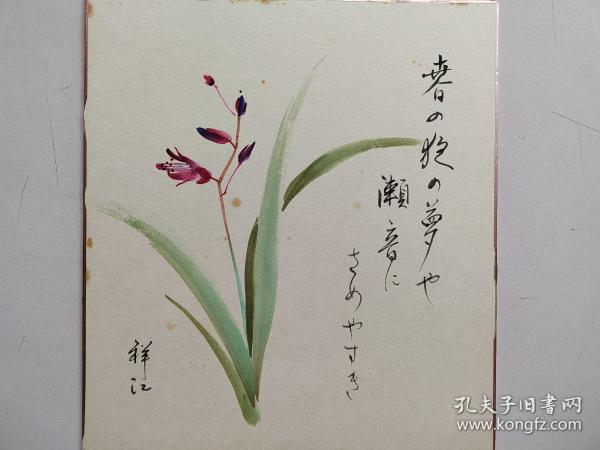 春の夜の夢や
瀬音に
さめやすき
祥江
孔夫子旧书网
www.kongfz.com